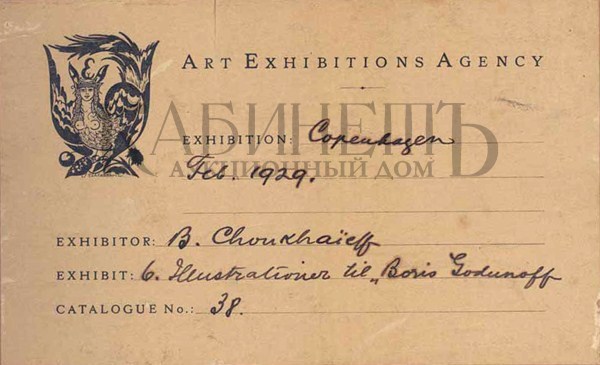 ART EXHIBITIONS AGENCY
КАБИНЕТЪ
АУКЦИОННЫЙ ДОМ
EXHIBITION: Copenhagen
Feb. 1929.
EXHIBITOR: B. Choukhaïeff
EXHIBIT: 6. Illustrationer til „Boris Godunoff
CATALOGUE No.: 38.